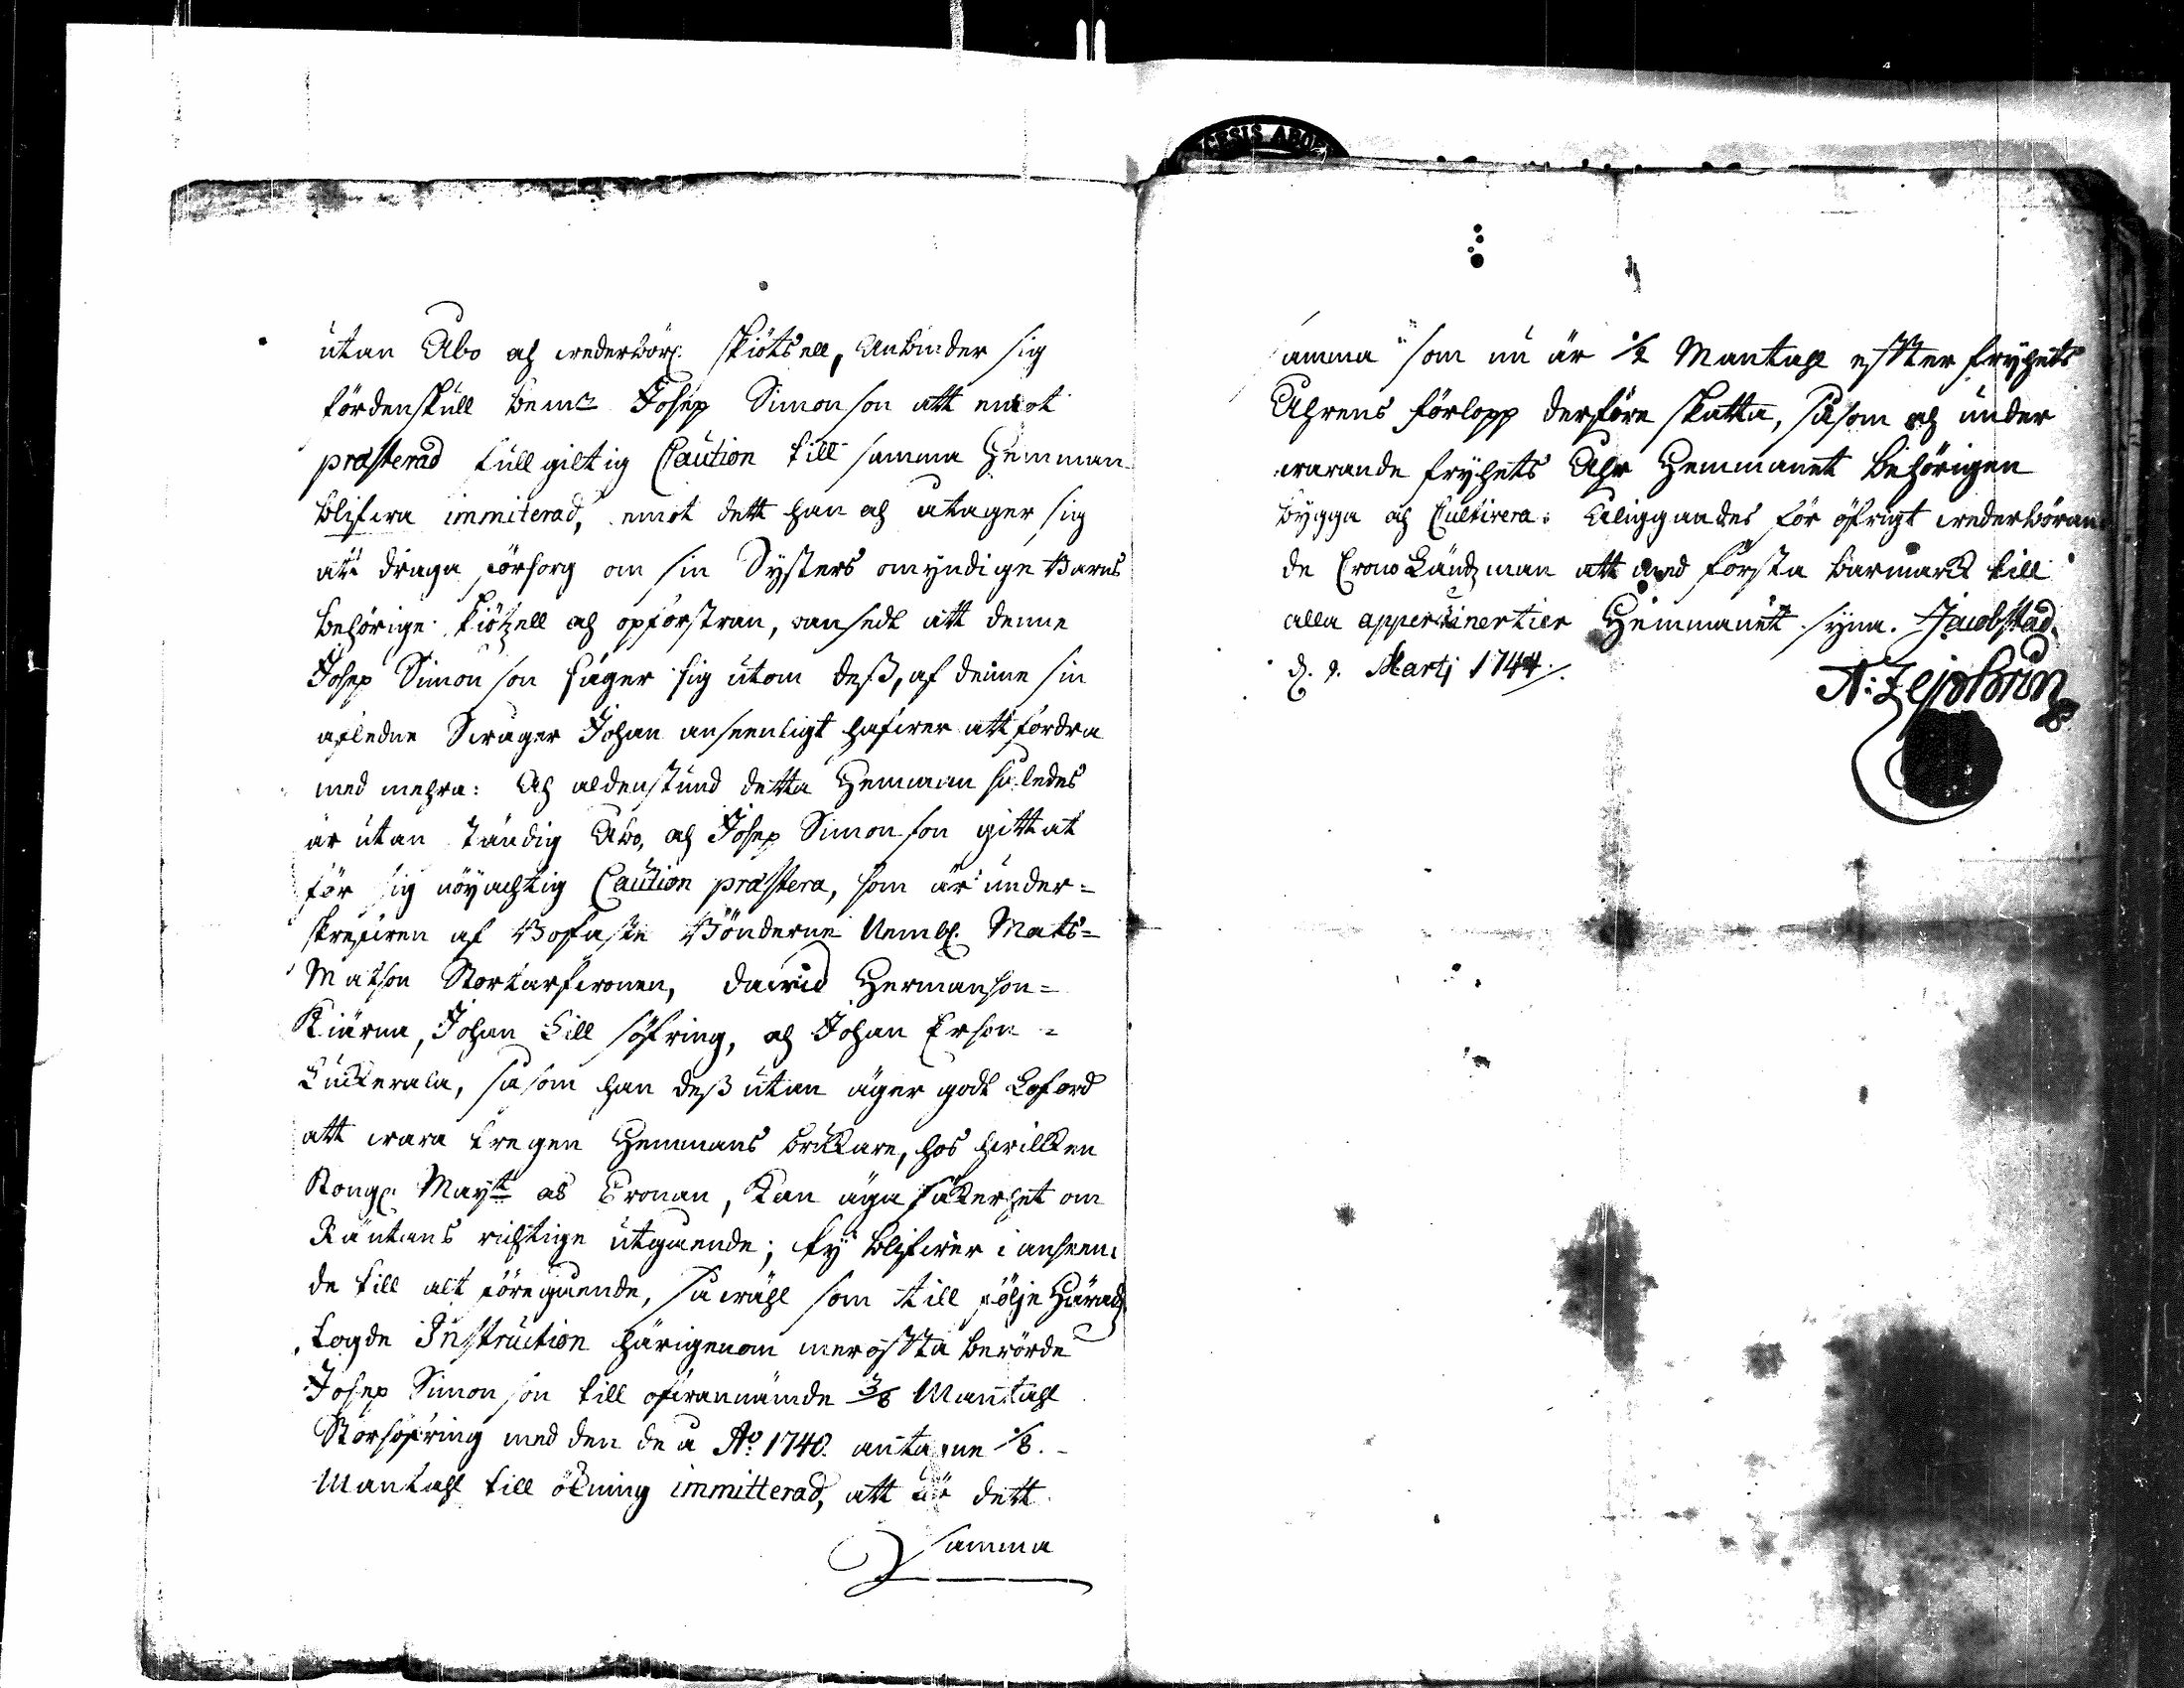 utan Åbo och wederbörl: skiötsell, anbinder sig
fördenskull bem:te Josep Simonson att emot
præsterad fullgiltig Caution till samma Hemman
blifwa immiterad, emot dett han och åtager sig
att draga försorg om sin Systers omyndige Barns
behörige skiötzell och opfostran, oansedt att denne
Josep Simonson säger sig utom dess, af denne sin
afledne Swåger Johan ansenligt hafwer att fordra
med mehra: Och aldenstund detta Hemman således
är utan ständig Åbo, och Josep Simonson gittat
för sig nöyachtig Caution præstera, som är under-
skrefwen af Bofaste Bönderne Nembl: Mats-
Matson Stortarfwonen, David Hermanson-
Kiärna, Johan Lill söfring, och Johan Erson-
Luckerala, såsom han dess utan äger godt Loford
att wara trogen Hemmans brukare, hos hwilken
Kongl: May:tt och Cronan, kan äga säkerhet om
Räntans richtige utgående; ty blifwer i ansen-
de till alt föregående, så wähl som till följe Härads
fogde Instruction härigenom merofta berörde
Josep Simonson till ofwannämde 3/8 Mantahl
Storsöfring med den de a A:o 1740. antagne 1/8.
Mantahl till ökning immitterad, att dett
samma
samma som nu är 1/2 Mantahl efter fryhets
Åhrens förlopp derföre skatta, såsom och under
warande fryhets Åhr Hemmanet behörigen
bygga och Cultivera: Åliggandes för öfrigt wederböran-
de Crono Ländzman att med första barmark till
alla appertinentier Hemmanet syna. Jacobstad
d. 9. Martj 1744.
A: Zejdlorun
CESIS ABO